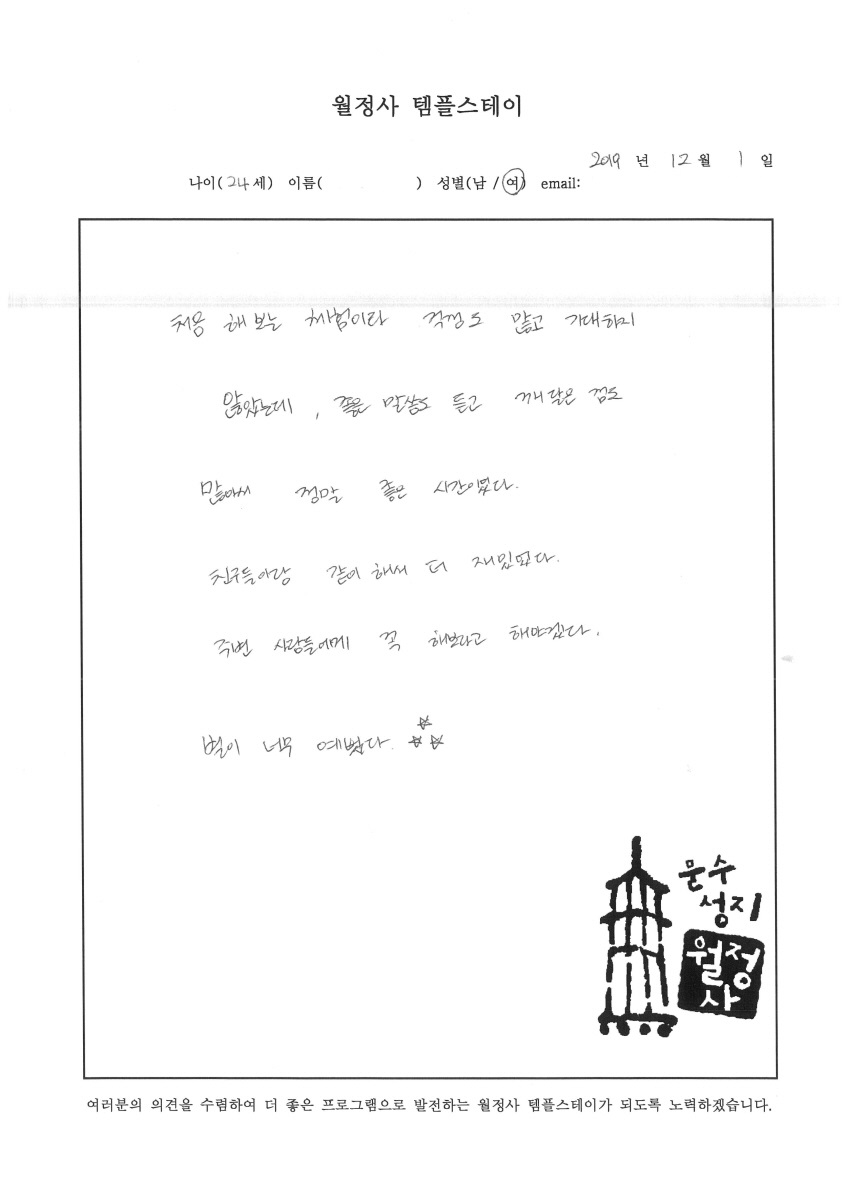 월정사 템플스테이
2019 년 12 월 1 일
나이( 24 세) 이름( ) 성별(남 / 여) email:
처음 해 보는 체험이라 걱정도 많고 기대하지
않았는데, 좋은 말씀도 듣고 깨달은 점도
많아서 정말 좋은 시간이였다.
친구들이랑 같이 해서 더 재밌었다.
주변 사람들에게 꼭 해보라고 해야겠다.
별이 너무 예뻤다.
문수
성지
월정
사
여러분의 의견을 수렴하여 더 좋은 프로그램으로 발전하는 월정사 템플스테이가 되도록 노력하겠습니다.